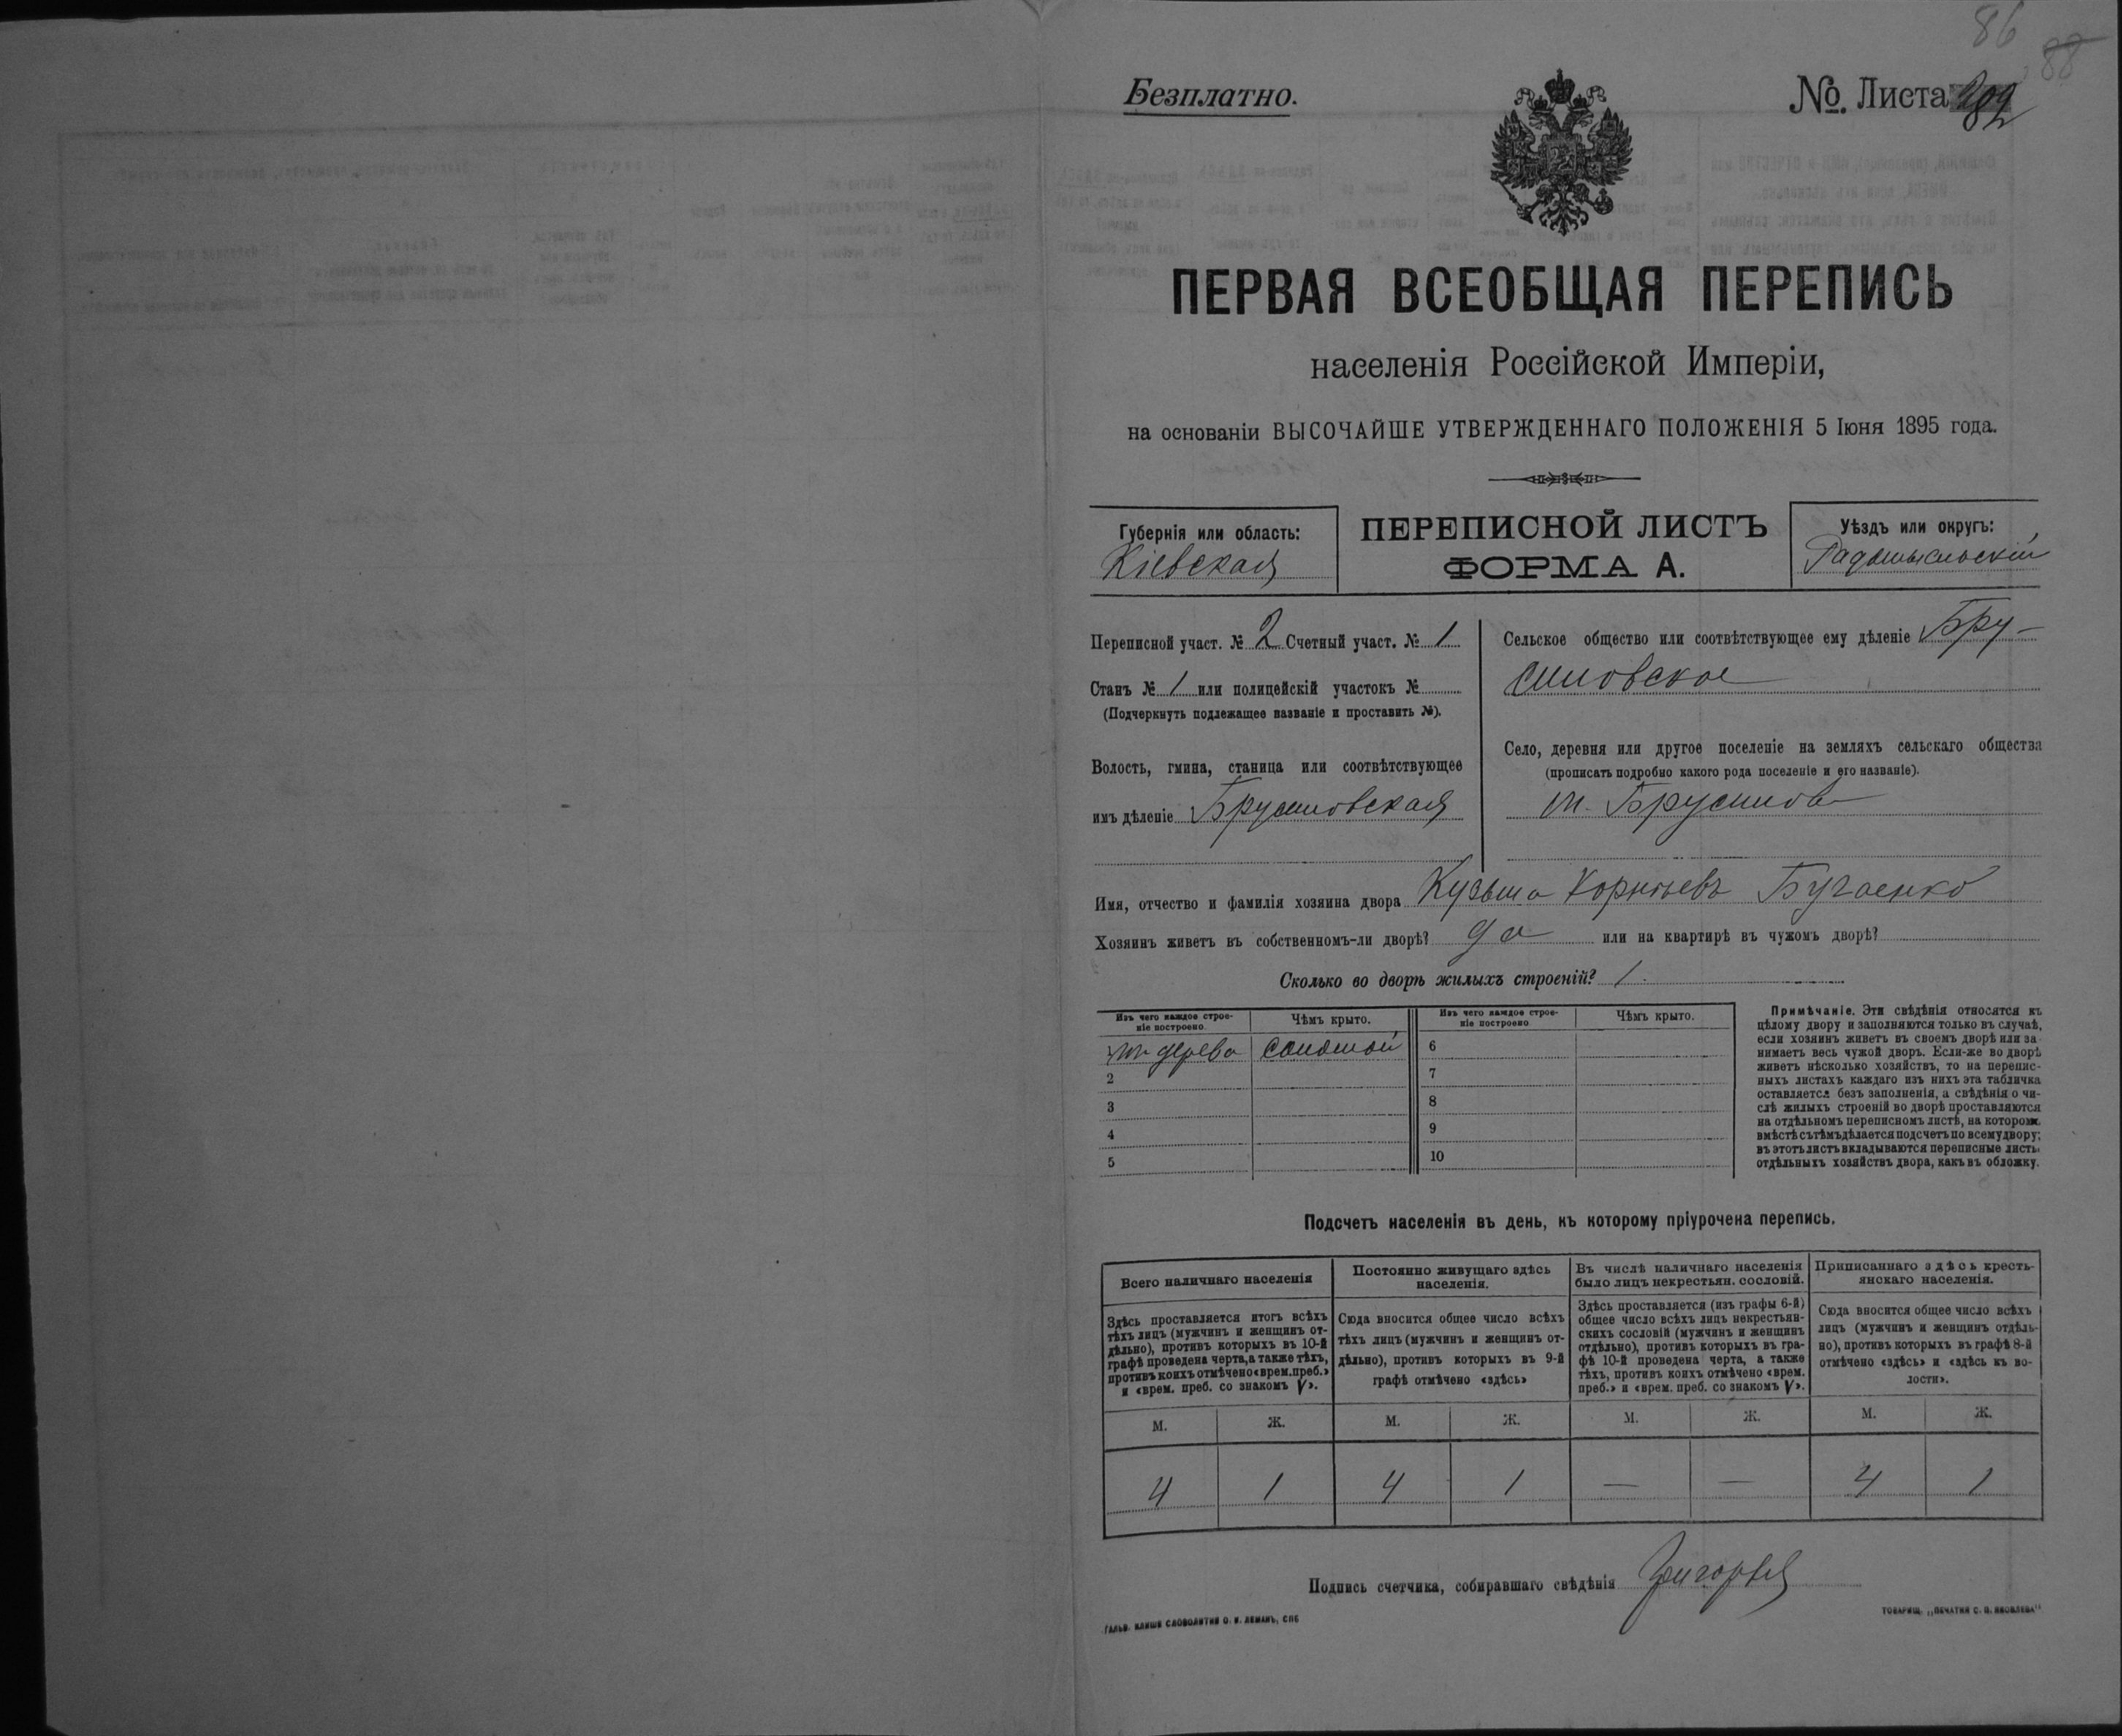 86
88
Безплатно.
№. Листа 202
ПЕРВАЯ ВСЕОБЩАЯ ПЕРЕПИСЬ
населенія Россійской Имперіи,
на основаніи ВЫСОЧАЙШЕ УТВЕРЖДЕННАГО ПОЛОЖЕНІЯ 5 Іюня 1895 года.
Губернія или область:
Кіевская
ПЕРЕПИСНОЙ ЛИСТЪ
ФОРМА А.
Уѣздъ или округъ:
Радомысльскій
Переписной участ. № 2 Счетный участ. № 1
Станъ № 1 или полицейскій участокъ №
(Подчеркнуть подлежащее названіе и проставить №).
Волость, гмина, станица или соотвѣтствующее
имъ дѣленіе Брусиловская
Сельское общество или соотвѣтствующее ему дѣленіе Бру-
силовское
Село, деревня или другое поселеніе на земляхъ сельскаго общества
(прописать подробно какого рода поселеніе и его названіе).
м. Брусиловъ
Имя, отчество и фамилія хозяина двора Кузьма Корнѣевъ Бугаенко
Хозяинъ живетъ въ собственномъ-ли дворѣ? да или на квартирѣ въ чужомъ дворѣ?
Сколько во дворѣ жилыхъ строеній? 1.
Изъ чего каждое строе-
ніе построено
Чѣмъ крыто.
Изъ чего каждое строе-
ніе построено
Чѣмъ крыто.
изъ дерева соломой
2
3
4
5
6
7
8
9
10
Примѣчаніе. Эти свѣдѣнія относятся къ
цѣлому двору и заполняются только въ случаѣ,
если хозяинъ живетъ въ своемъ дворѣ или за-
нимаетъ весь чужой дворъ. Если-же во дворѣ
живетъ нѣсколько хозяйствъ, то на перепис-
ныхъ листахъ каждаго изъ нихъ эта табличка
оставляется безъ заполненія, а свѣдѣнія о чи-
слѣ жилыхъ строеній во дворѣ проставляются
на отдѣльномъ переписномъ листѣ, на которомъ
вмѣстѣ съ тѣмъ дѣлается подсчетъ по всему двору;
въ этотъ листъ вкладываются переписные листы
отдѣльныхъ хозяйствъ двора, какъ въ обложку.
Подсчетъ населенія въ день, къ которому пріурочена перепись.
Всего наличнаго населенія
Здѣсь проставляется итогъ всѣхъ
тѣхъ лицъ (мужчинъ и женщинъ от-
дѣльно), противъ которыхъ въ 10-й
графѣ проведена черта, а также тѣхъ,
противъ коихъ отмѣчено «врем. преб.»
и «врем. преб. со знакомъ V».
Постоянно живущаго здѣсь
населенія.
Сюда вносится общее число всѣхъ
тѣхъ лицъ (мужчинъ и женщинъ от-
дѣльно), противъ которыхъ въ 9-й
графѣ отмѣчено «здѣсь»
Въ числѣ наличнаго населенія
было лицъ некрестьян. сословій.
Здѣсь проставляется (изъ графы 6-й)
общее число всѣхъ лицъ некрестьян-
скихъ сословій (мужчинъ и женщинъ
отдѣльно), противъ которыхъ въ гра-
фѣ 10-й проведена черта, а также
тѣхъ, противъ коихъ отмѣчено «врем.
преб.» и «врем. преб. со знакомъ V».
Приписаннаго здѣсь кресть-
янскаго населенія.
Сюда вносится общее число всѣхъ
лицъ (мужчинъ и женщинъ отдѣль-
но), противъ которыхъ въ графѣ 8-й
отмѣчено «здѣсь» и «здѣсь въ во-
лости».
М. Ж. М. Ж. М. Ж. М. Ж.
4 1 4 1 — — 4 1
Подпись счетчика, собиравшаго свѣдѣнія
ГАЛЬВ. КЛИШЕ СЛОВОЛИТНИ О. И. ЛЕМАНЪ, СПБ
ТОВАРИЩ. „ПЕЧАТНЯ С. П. ЯКОВЛЕВА"